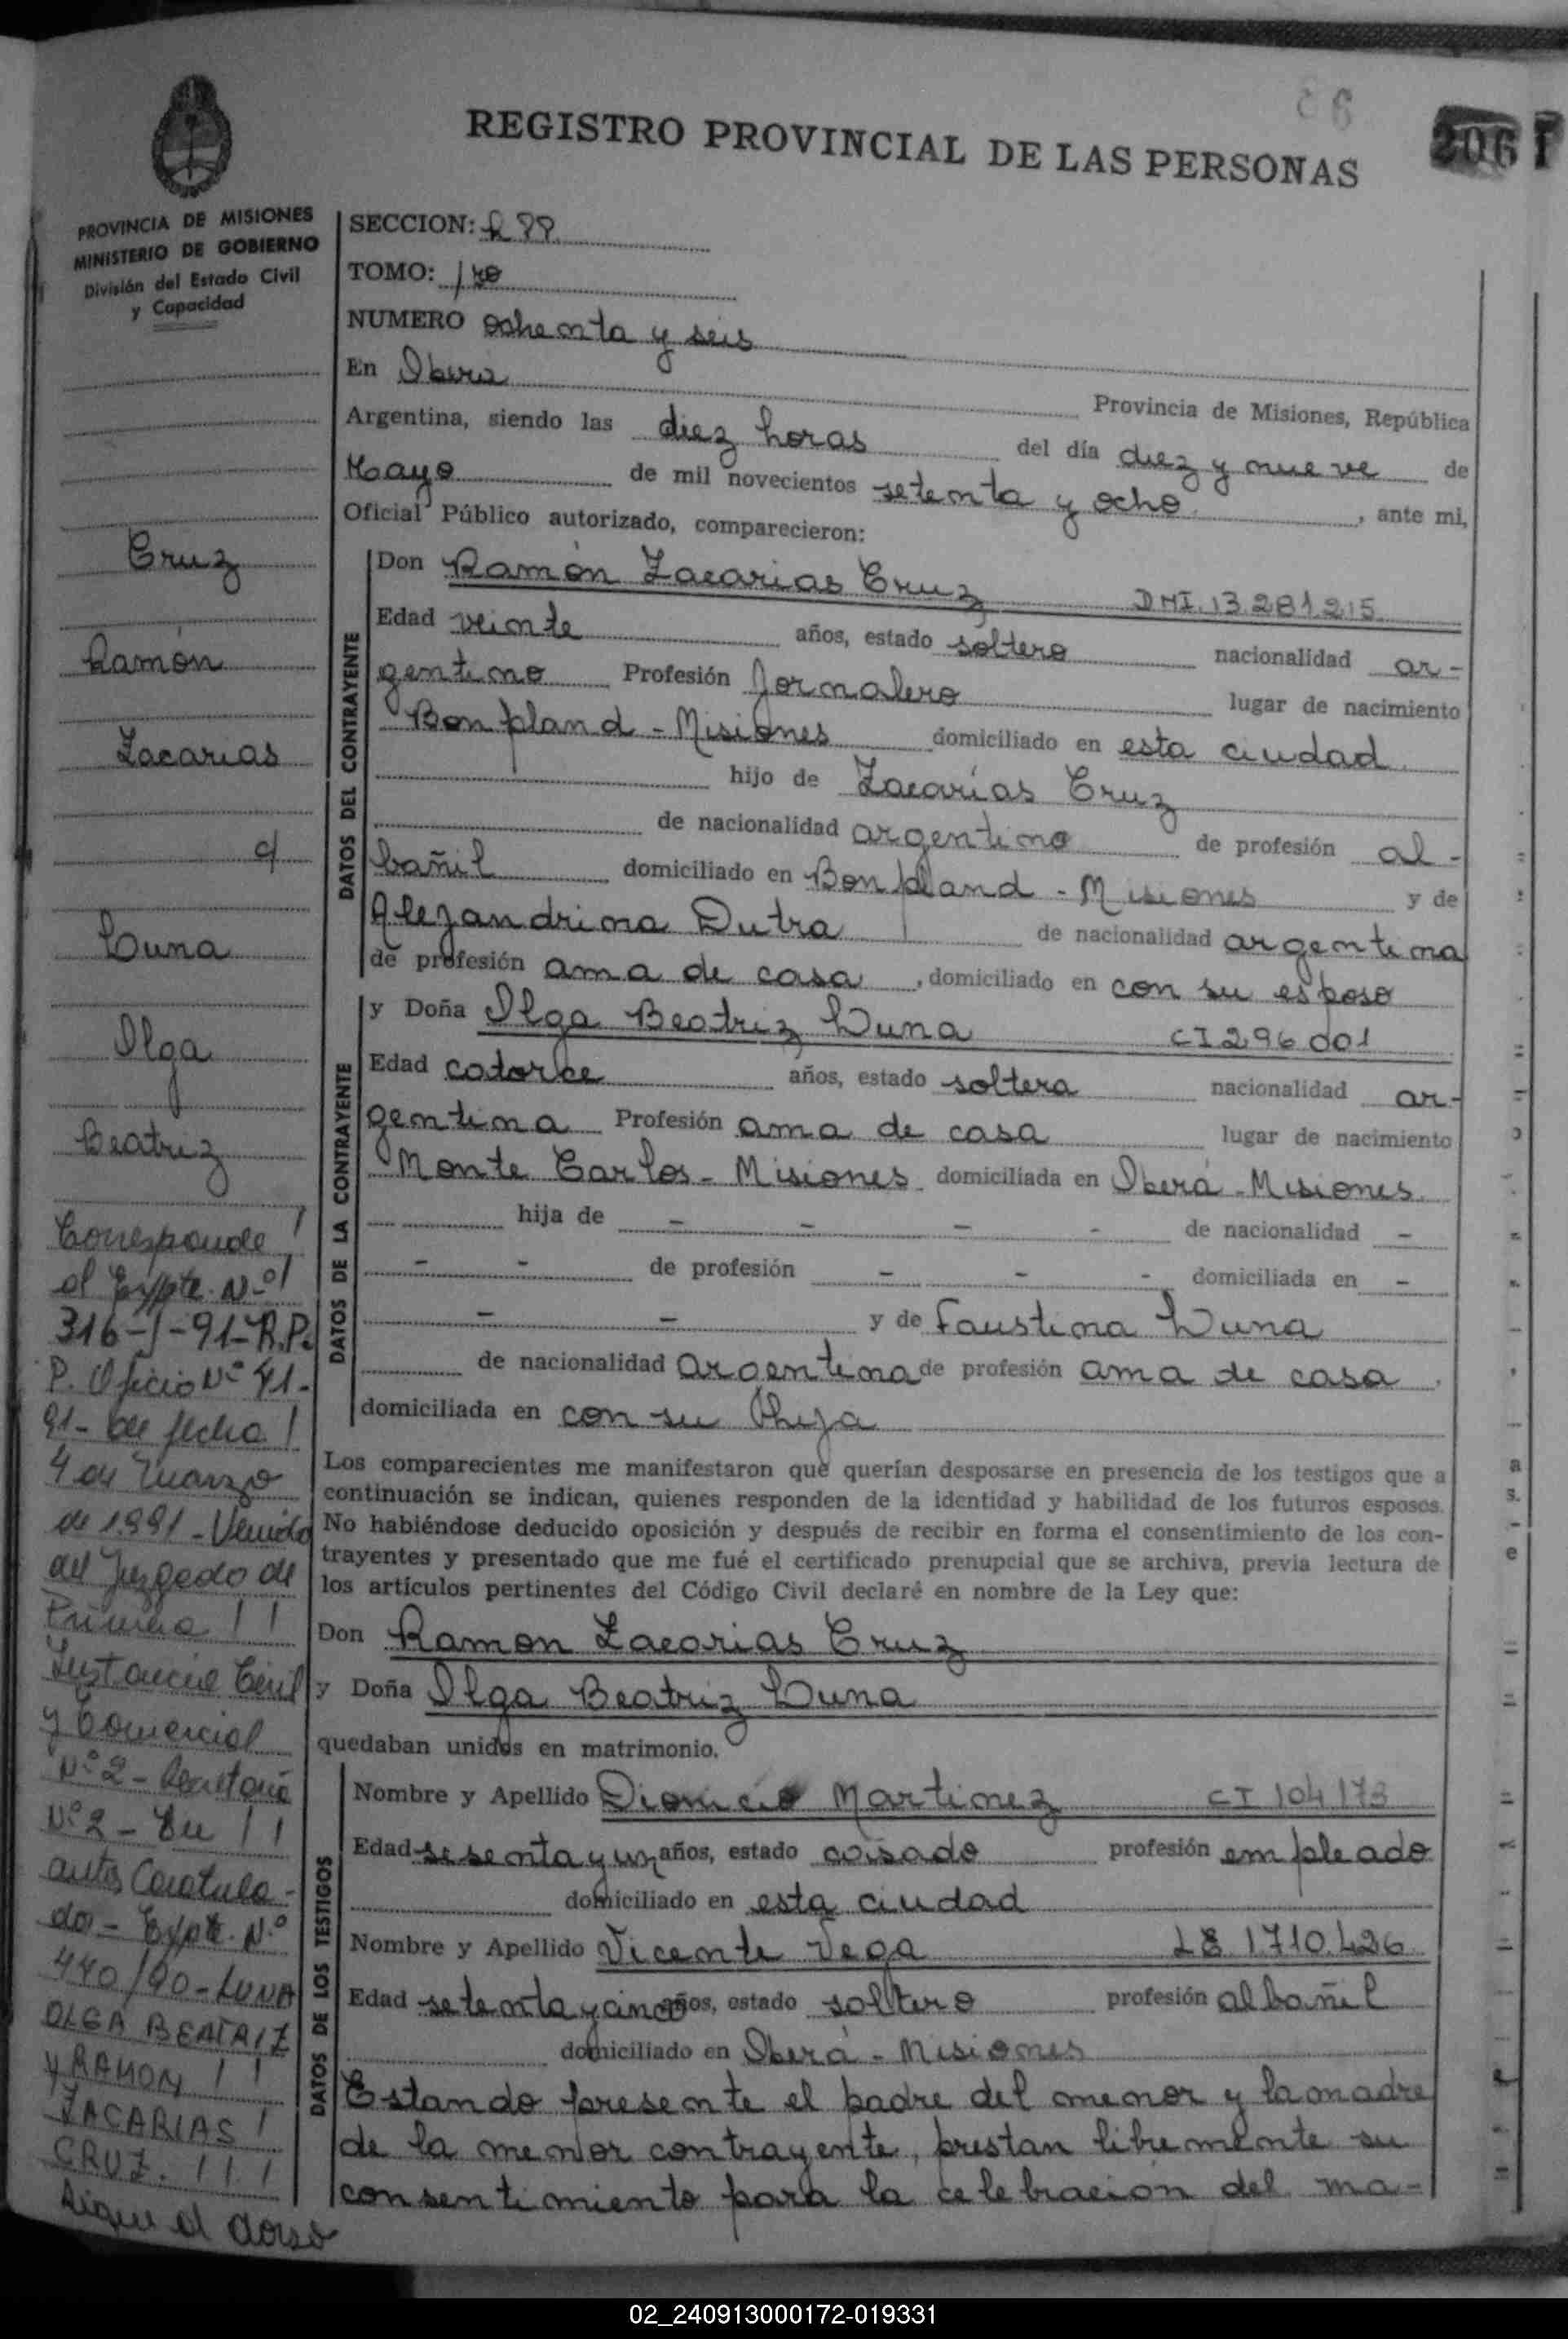 86
206 F
REGISTRO PROVINCIAL DE LAS PERSONAS
PROVINCIA DE MISIONES
MINISTERIO DE GOBIERNO
División del Estado Civil
y Capacidad
Cruz
Ramón
Zacarias
c/
Luna
Olga
Beatriz
Corresponde
al Expte. Nº
316-J-91-R.P.
P. Oficio Nº 41-
91- de fecha
4 de Marzo
de 1991 - Venido
del Juzgado de
Primera
Instancia Civil
y Comercial
Nº 2 - Secretaria
Nº 2 - En
autos Caratula-
do - Expte. Nº
440/90 - LUNA
OLGA BEATRIZ
y RAMON
ZACARIAS
CRUZ.
Sigue al dorso
SECCION:
TOMO: 1ro
NUMERO ochenta y seis
En Oberá Provincia de Misiones, República
Argentina, siendo las diez horas del día diez y nueve de
Mayo de mil novecientos setenta y ocho, ante mi,
Oficial Público autorizado, comparecieron:
DATOS DEL CONTRAYENTE
Don Ramón Zacarias Cruz DNI. 13.281.215
Edad veinte años, estado soltero nacionalidad ar-
gentino Profesión Jornalero lugar de nacimiento
Bonpland - Misiones domiciliado en esta ciudad
hijo de Zacarías Cruz
de nacionalidad argentino de profesión al-
bañil domiciliado en Bonpland - Misiones y de
Alejandrina Dutra de nacionalidad argentina
de profesión ama de casa, domiciliado en con su esposo
DATOS DE LA CONTRAYENTE
y Doña Olga Beatriz Luna CI 296001
Edad catorce años, estado soltera nacionalidad ar-
gentina Profesión ama de casa lugar de nacimiento
Monte Carlos - Misiones domiciliada en Oberá - Misiones
hija de - - - - de nacionalidad -
- - de profesión - - - domiciliada en -
- - y de Faustina Luna
de nacionalidad argentina de profesión ama de casa,
domiciliada en con su hija
Los comparecientes me manifestaron que querían desposarse en presencia de los testigos que a
continuación se indican, quienes responden de la identidad y habilidad de los futuros esposos.
No habiéndose deducido oposición y después de recibir en forma el consentimiento de los con-
trayentes y presentado que me fué el certificado prenupcial que se archiva, previa lectura de
los artículos pertinentes del Código Civil declaré en nombre de la Ley que:
Don Ramon Zacarias Cruz
y Doña Olga Beatriz Luna
quedaban unidos en matrimonio.
DATOS DE LOS TESTIGOS
Nombre y Apellido Dionicio Martinez CI 104173
Edad sesenta y un años, estado casado profesión empleado
domiciliado en esta ciudad
Nombre y Apellido Vicente Vega LE 1.710.426
Edad setenta y cinco años, estado soltero profesión albañil
domiciliado en Oberá - Misiones
Estando presente el padre del menor y la madre
de la menor contrayente, prestan libremente su
consentimiento para la celebración del ma-
02_240913000172-019331